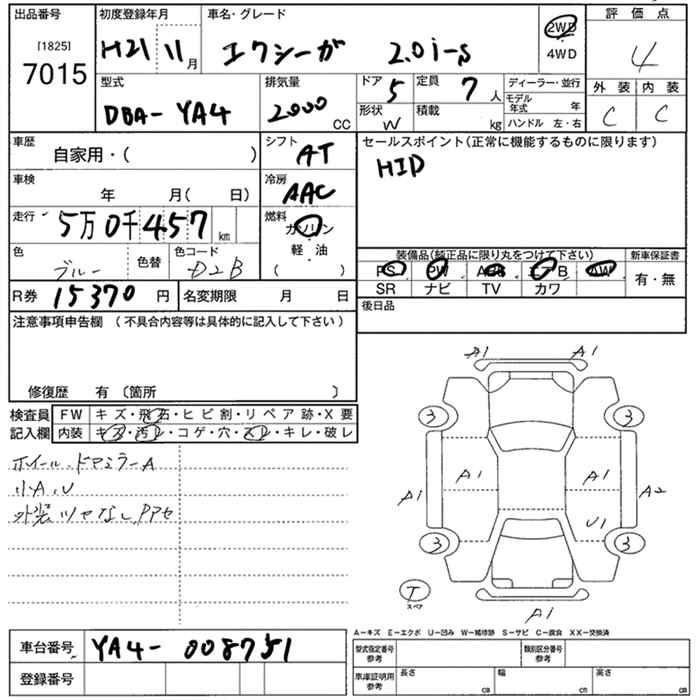 出品番号
[1825]
7015
初度登録年月
H21 11月
車名・グレード
エクシーガ 2.0i-S
2WD
4WD
評価点
4
外装 内装
C C
型式
DBA-YA4
排気量
2000 CC
ドア 5
定員 7 人
形状 W
積載 kg
ディーラー・並行
モデル年式 年
ハンドル 左・右
車歴
自家用・( )
シフト
AT
セールスポイント(正常に機能するものに限ります)
HID
車検
年 月( 日)
冷房
AAC
走行
5万0千457 km
燃料
ガソリン
軽・油
( )
色
ブルー
色替
色コード
D2B
装備品(純正品に限り丸をつけて下さい)
PS PW ABS エアB AW
SR ナビ TV カワ
新車保証書
有・無
R券 15370 円
名変期限 月 日
後日品
注意事項申告欄 (不具合内容等は具体的に記入して下さい)
修復歴 有 〔箇所 〕
検査員記入欄
FW キズ・飛石・ヒビ割・リペア跡・X要
内装 キズ・汚レ・コゲ・穴・スレ・キレ・破レ
ホイール、ドアミラーA
小A、U
外装ツヤなし
A1 A1
3 3
A1 A1 A1 A2
U1
3 3
T
スペア
A1
A-キズ E-エクボ U-凹み W-補修跡 S-サビ C-腐食 XX-交換済
車台番号 YA4-008751
登録番号
型式指定番号
参考
類別区分番号
参考
車庫証明用
参考
長さ cm
幅 cm
高さ cm